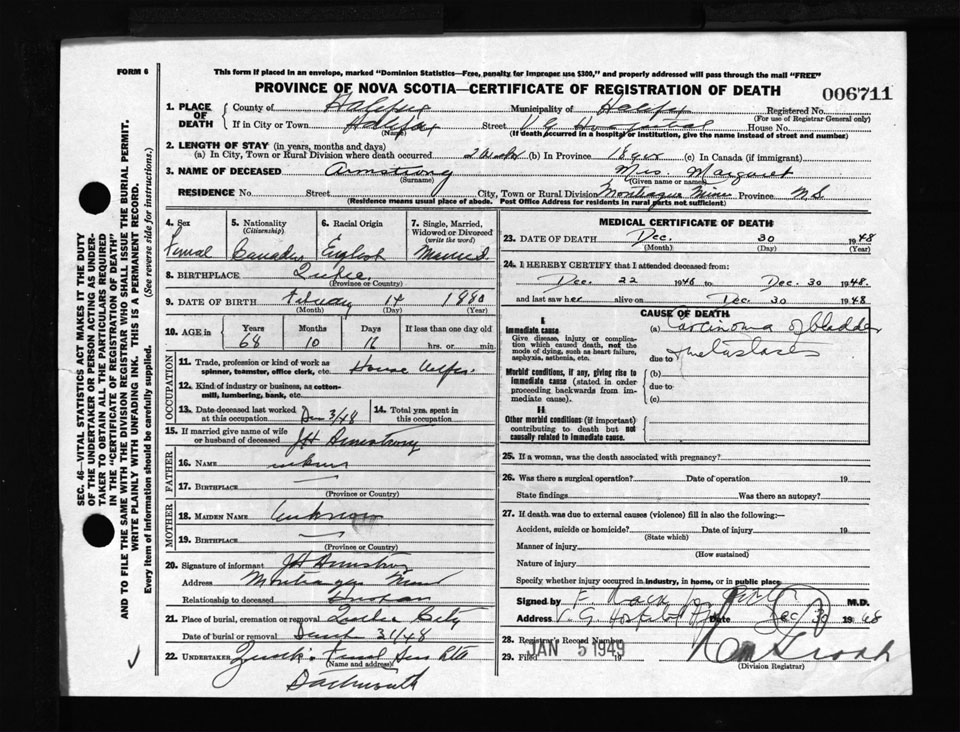 FORM 6
This form if placed in an envelope, marked "Dominion Statistics—Free, penalty for improper use $300," and properly addressed will pass through the mail "FREE"
PROVINCE OF NOVA SCOTIA—CERTIFICATE OF REGISTRATION OF DEATH
006711
1. PLACE OF DEATH
County of Halifax Municipality of Halifax Registered No.
(For use of Registrar General only)
If in City or Town Halifax Street V.G. Hospital House No.
(Name) (If death occurred in a hospital or institution, give the name instead of street and number)
2. LENGTH OF STAY (in years, months and days)
(a) In City, Town or Rural Division where death occurred (b) In Province (c) In Canada (if immigrant)
3. NAME OF DECEASED Armstrong Mrs. Margaret
(Surname) (Given name or names)
RESIDENCE No. Street City, Town or Rural Division Montague Mines Province N.S
(Residence means usual place of abode. Post Office Address for residents in rural parts not sufficient)
4. Sex
Femal
5. Nationality
(Citizenship)
Canadian
6. Racial Origin
English
7. Single, Married, Widowed or Divorced
(write the word)
Married
8. BIRTHPLACE Quebec
(Province or Country)
9. DATE OF BIRTH February 14 1880
(Month) (Day) (Year)
10. AGE in
Years Months Days If less than one day old
68 10 16 hrs. or min.
OCCUPATION
11. Trade, profession or kind of work as spinner, teamster, office clerk, etc. House
12. Kind of industry or business, as cotton-mill, lumbering, bank, etc.
13. Date deceased last worked at this occupation 3/48
14. Total yrs. spent in this occupation
15. If married give name of wife or husband of deceased JH Armstrong
FATHER
16. NAME
17. BIRTHPLACE
(Province or Country)
MOTHER
18. MAIDEN NAME Unknown
19. BIRTHPLACE
(Province or Country)
20. Signature of informant JH Armstrong
Address Montague Mines
Relationship to deceased
21. Place of burial, cremation or removal Quebec City
Date of burial or removal 31/48
22. UNDERTAKER Zink's
(Name and address)
Dartmouth
MEDICAL CERTIFICATE OF DEATH
23. DATE OF DEATH Dec. 30 1948
(Month) (Day) (Year)
24. I HEREBY CERTIFY that I attended deceased from:
Dec. 22 1948 to Dec. 30 1948.
and last saw her alive on Dec. 30 1948
CAUSE OF DEATH
I.
Immediate cause.
Give disease, injury or complication which caused death, not the mode of dying, such as heart failure, asphyxia, asthenia, etc.
(a) Carcinoma of bladder
due to metastases
Morbid conditions, if any, giving rise to immediate cause (stated in order proceeding backwards from immediate cause).
(b)
due to
(c)
II
Other morbid conditions (if important) contributing to death but not causally related to immediate cause.
25. If a woman, was the death associated with pregnancy?
26. Was there a surgical operation? Date of operation 19
State findings Was there an autopsy?
27. If death was due to external causes (violence) fill in also the following:—
Accident, suicide or homicide? Date of injury 19
(State which)
Manner of injury
(How sustained)
Nature of injury
Specify whether injury occurred in industry, in home, or in public place
Signed by M.D.
Address V.G. Hospital Date Dec 30 1948
28. Registrar's Record Number
29. Filed JAN 5 1949 19
(Division Registrar)
SEC. 46—VITAL STATISTICS ACT MAKES IT THE DUTY
OF THE UNDERTAKER OR PERSON ACTING AS UNDER-
TAKER TO OBTAIN ALL THE PARTICULARS REQUIRED
IN THE "CERTIFICATE OF REGISTRATION OF DEATH"
AND TO FILE THE SAME WITH THE DIVISION REGISTRAR WHO SHALL ISSUE THE BURIAL PERMIT.
WRITE PLAINLY WITH UNFADING INK. THIS IS A PERMANENT RECORD.
Every item of information should be carefully supplied. (See reverse side for instructions.)